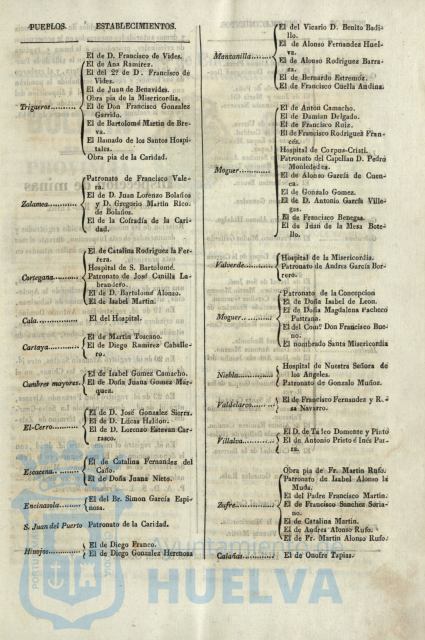 PUEBLOS. ESTABLECIMIENTOS.
Trigueros..........
El de D. Francisco de Vides.
El de Ana Ramirez.
El del 2.º de D. Francisco de
Vides.
El de Juan de Benavides.
Obra pia de la Misericordia.
El de Don Francisco Gonzalez
Garrido.
El de Bartolomé Martin de Bre-
va.
El llamado de los Santos Hospi-
tales.
Obra pia de la Caridad.
Zalamea...........
Patronato de Francisco Vale-
ra.
El de D. Juan Lorenzo Bolaños
y D. Gregorio Martin Rico
de Bolaños.
El de la Cofradía de la Cari-
dad.
Cortegana.........
El de Catalina Rodriguez la Fer-
rera.
Hospital de S. Bartolomé.
Patronato de José Canilla La-
brandero.
El de D. Bartolomé Alonso.
El de Isabel Martin.
Cala............... El del Hospital.
Cartaya...........
El de Martin Toscano.
El de Diego Ramirez Caballe-
ro.
Cumbres mayores.
El de Isabel Gomez Camacho.
El de Doña Juana Gomez Mar-
quez.
El-Cerro..........
El de D. José Gonzalez Sierra.
El de D. Lucas Haldon.
El de D. Lorenzo Estevan Car-
rasco.
Escacena..........
El de Catalina Fernandez del
Caño.
El de Doña Juana Nieto.
Encinasola........
El del Br. Simon García Espi-
nosa.
S. Juan del Puerto Patronato de la Caridad.
Hinojos...........
El de Diego Franco.
El de Diego Gonzalez Herenosa
Manzanilla........
El del Vicario D. Benito Badi-
llo.
El de Alonso Fernandez Huel-
va.
El de Alonso Rodriguez Barra-
za.
El de Bernardo Estremoz.
El de Francisco Cuella Andina.
Moguer............
El de Anton Camacho.
El de Damian Delgado.
El de Francisco Ruiz.
El de Francisco Rodriguez Fran-
cés.
Hospital de Corpus-Cristi.
Patronato del Capellan D. Pedro
Moniededea.
El de Alonso García de Cuen-
ca.
El de Gonzalo Gomez.
El de D. Antonio García Ville-
gas.
El de Francisco Benegas.
El de Juan de la Mesa Bote-
llo.
Valverde..........
Hospital de la Misericordia.
Patronato de Andres García Bor-
rero.
Moguer............
Patronato de la Concepcion
El de Doña Isabel de Leon.
El de Doña Magdalena Pacheco
Pastrana.
El del Com.º Don Francisco Bue-
no.
El nombrado Santa Misericordia
Niebla............
Hospital de Nuestra Señora de
los Angeles.
Patronato de Gonzalo Muñoz.
Valdelarco........
El de Francisco Fernandez y R
sa Navarro.
Villalva..........
El de D. Tadeo Domente y Pinto
El de Antonio Prieto é Inés Pa-
Zufre.............
Obra pia de Fr. Martin Rufo.
Patronato de Isabel Alonso la
Muda.
El del Padre Francisco Martin.
El de Francisco Sanchez Soria-
no.
El de Catalina Martin.
El de Andres Alonso Rufo.
El de Fr. Martin Alonso Rufo.
Calañas........... El de Onofre Tapias.
Ayuntamiento de
HUELVA